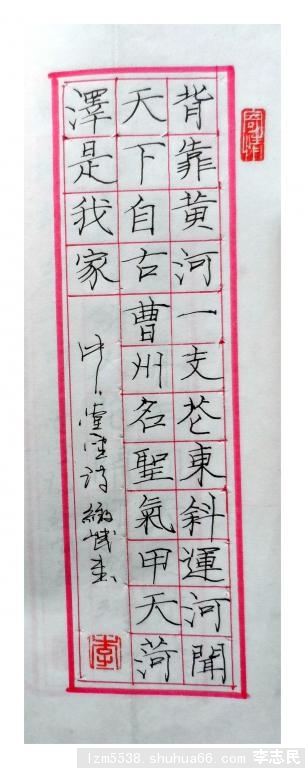 背靠黃河一支花東斜運河聞
天下自古曹州名聖氣甲天菏
澤是我家
李
lzm5538.shuhua66.com 李志民